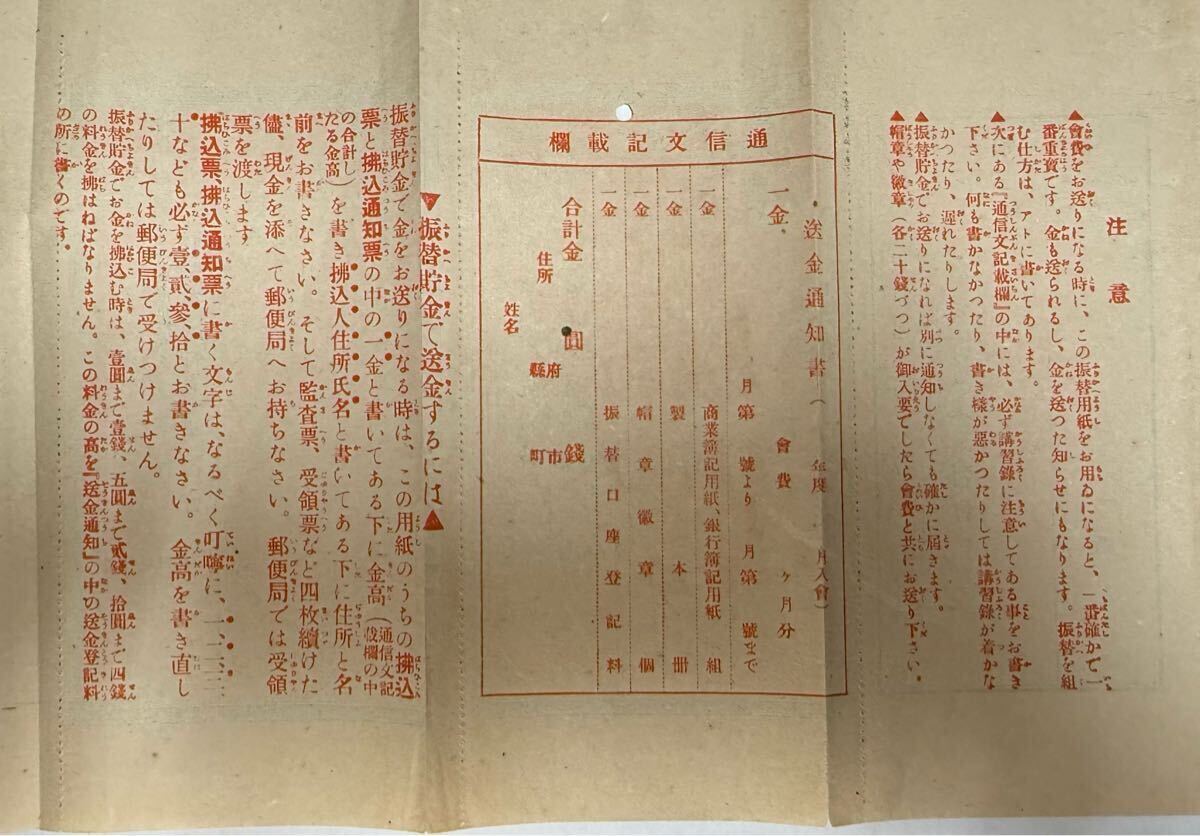 注意
▲會費をお送りになる時に、この振替用紙をお用ゐになると、一番確かで一
番重寶です。金も送られるし、金を送つた知らせにもなります。振替を組
む仕方は、アトに書いてあります。
▲次にある『通信文記載欄』の中には、必ず講習錄に注意してある事をお書き
下さい。何も書かなかつたり、書き樣が惡かつたりしては講習錄が着かな
かつたり、遲れたりします。
▲振替貯金でお送りになれば別に通知しなくても確かに屆きます。
▲帽章や徽章（各二十錢づつ）が御入要でしたら會費と共にお送り下さい。
通信文記載欄
送金通知書（　年度　月入會）
一金　會費　ヶ月分
月第　號より　月第　號まで
一金　商業簿記用紙、銀行簿記用紙　組
一金　製本　冊
一金　帽章徽章　個
一金　振替口座登記料
合計金　圓　錢
住所　府縣　市町
姓名
▼振替貯金で送金するには▲
振替貯金で金をお送りになる時は、この用紙のうちの拂込
票と拂込通知票の中の一金と書いてある下に金高（通信文記載欄の中
の合計したる金高）を書き拂込人住所氏名と書いてある下に住所と名
前をお書きなさい。そして監査票、受領票など四枚續けた
儘、現金を添へて郵便局へお持ちなさい。郵便局では受領
票を渡します
拂込票、拂込通知票に書く文字は、なるべく叮嚀に、一、二、三、
十なども必ず壹、貳、參、拾とお書きなさい。金高を書き直し
たりしては郵便局で受けつけません。
振替貯金でお金を拂込む時は、壹圓まで壹錢、五圓まで貳錢、拾圓まで四錢
の料金を拂はねばなりません。この料金の高を『送金通知』の中の送金登記料
の所に書くのです。